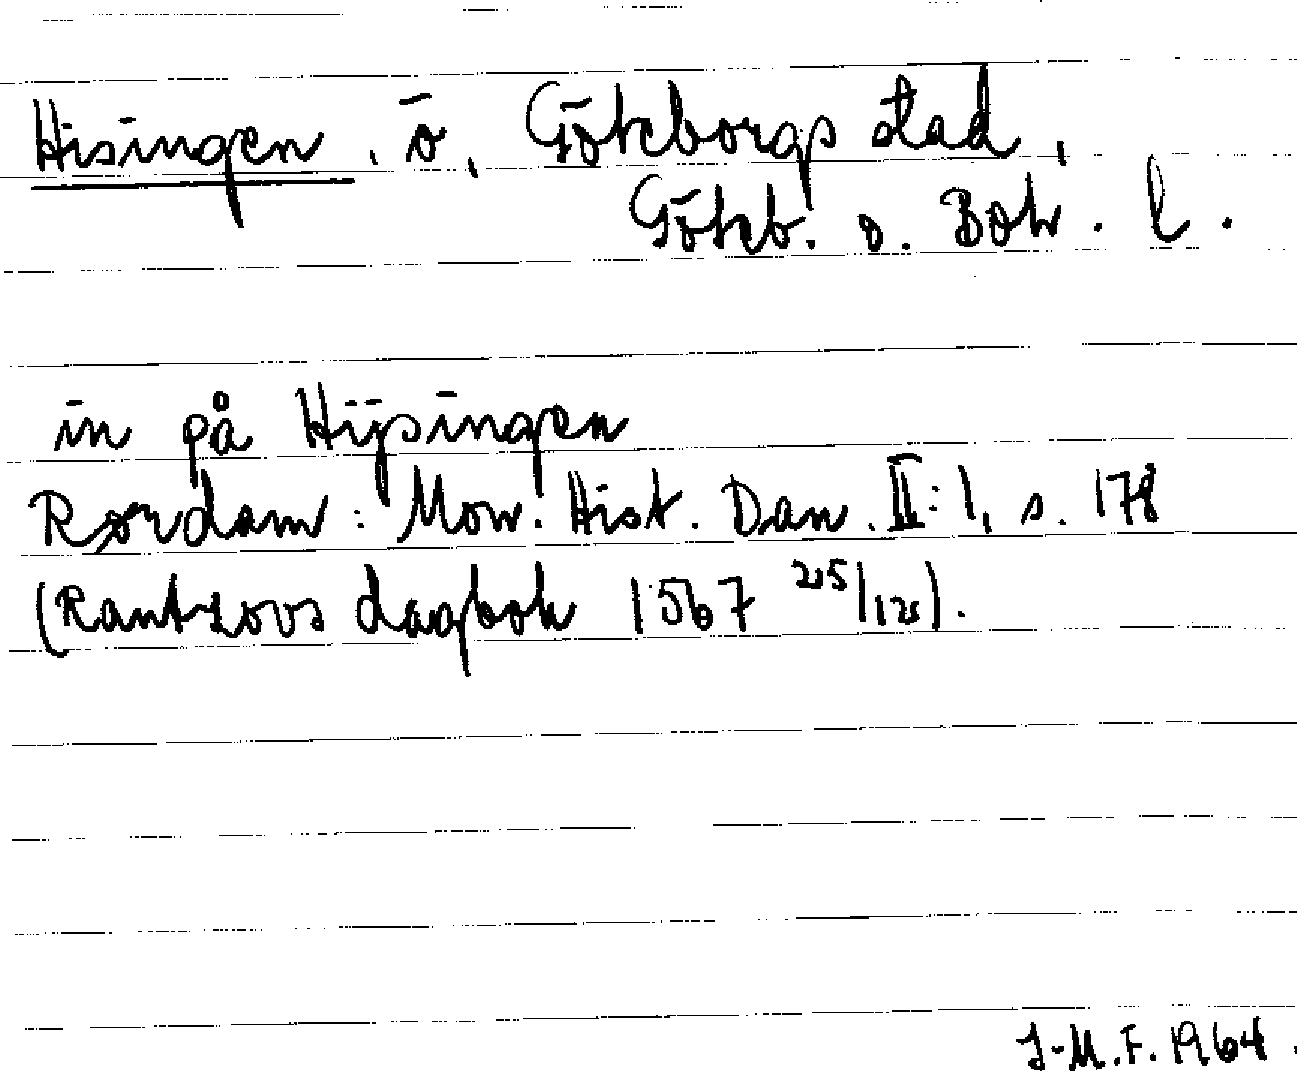 Hisingen, ö, Göteborgs stad,
Göteb. o. Boh. l.
in på Hijsingen
Rørdam: Mon. Hist. Dan. II:1, s. 178
(Rantzovs dagbok 1567 25/12).
J-M.F. 1964.